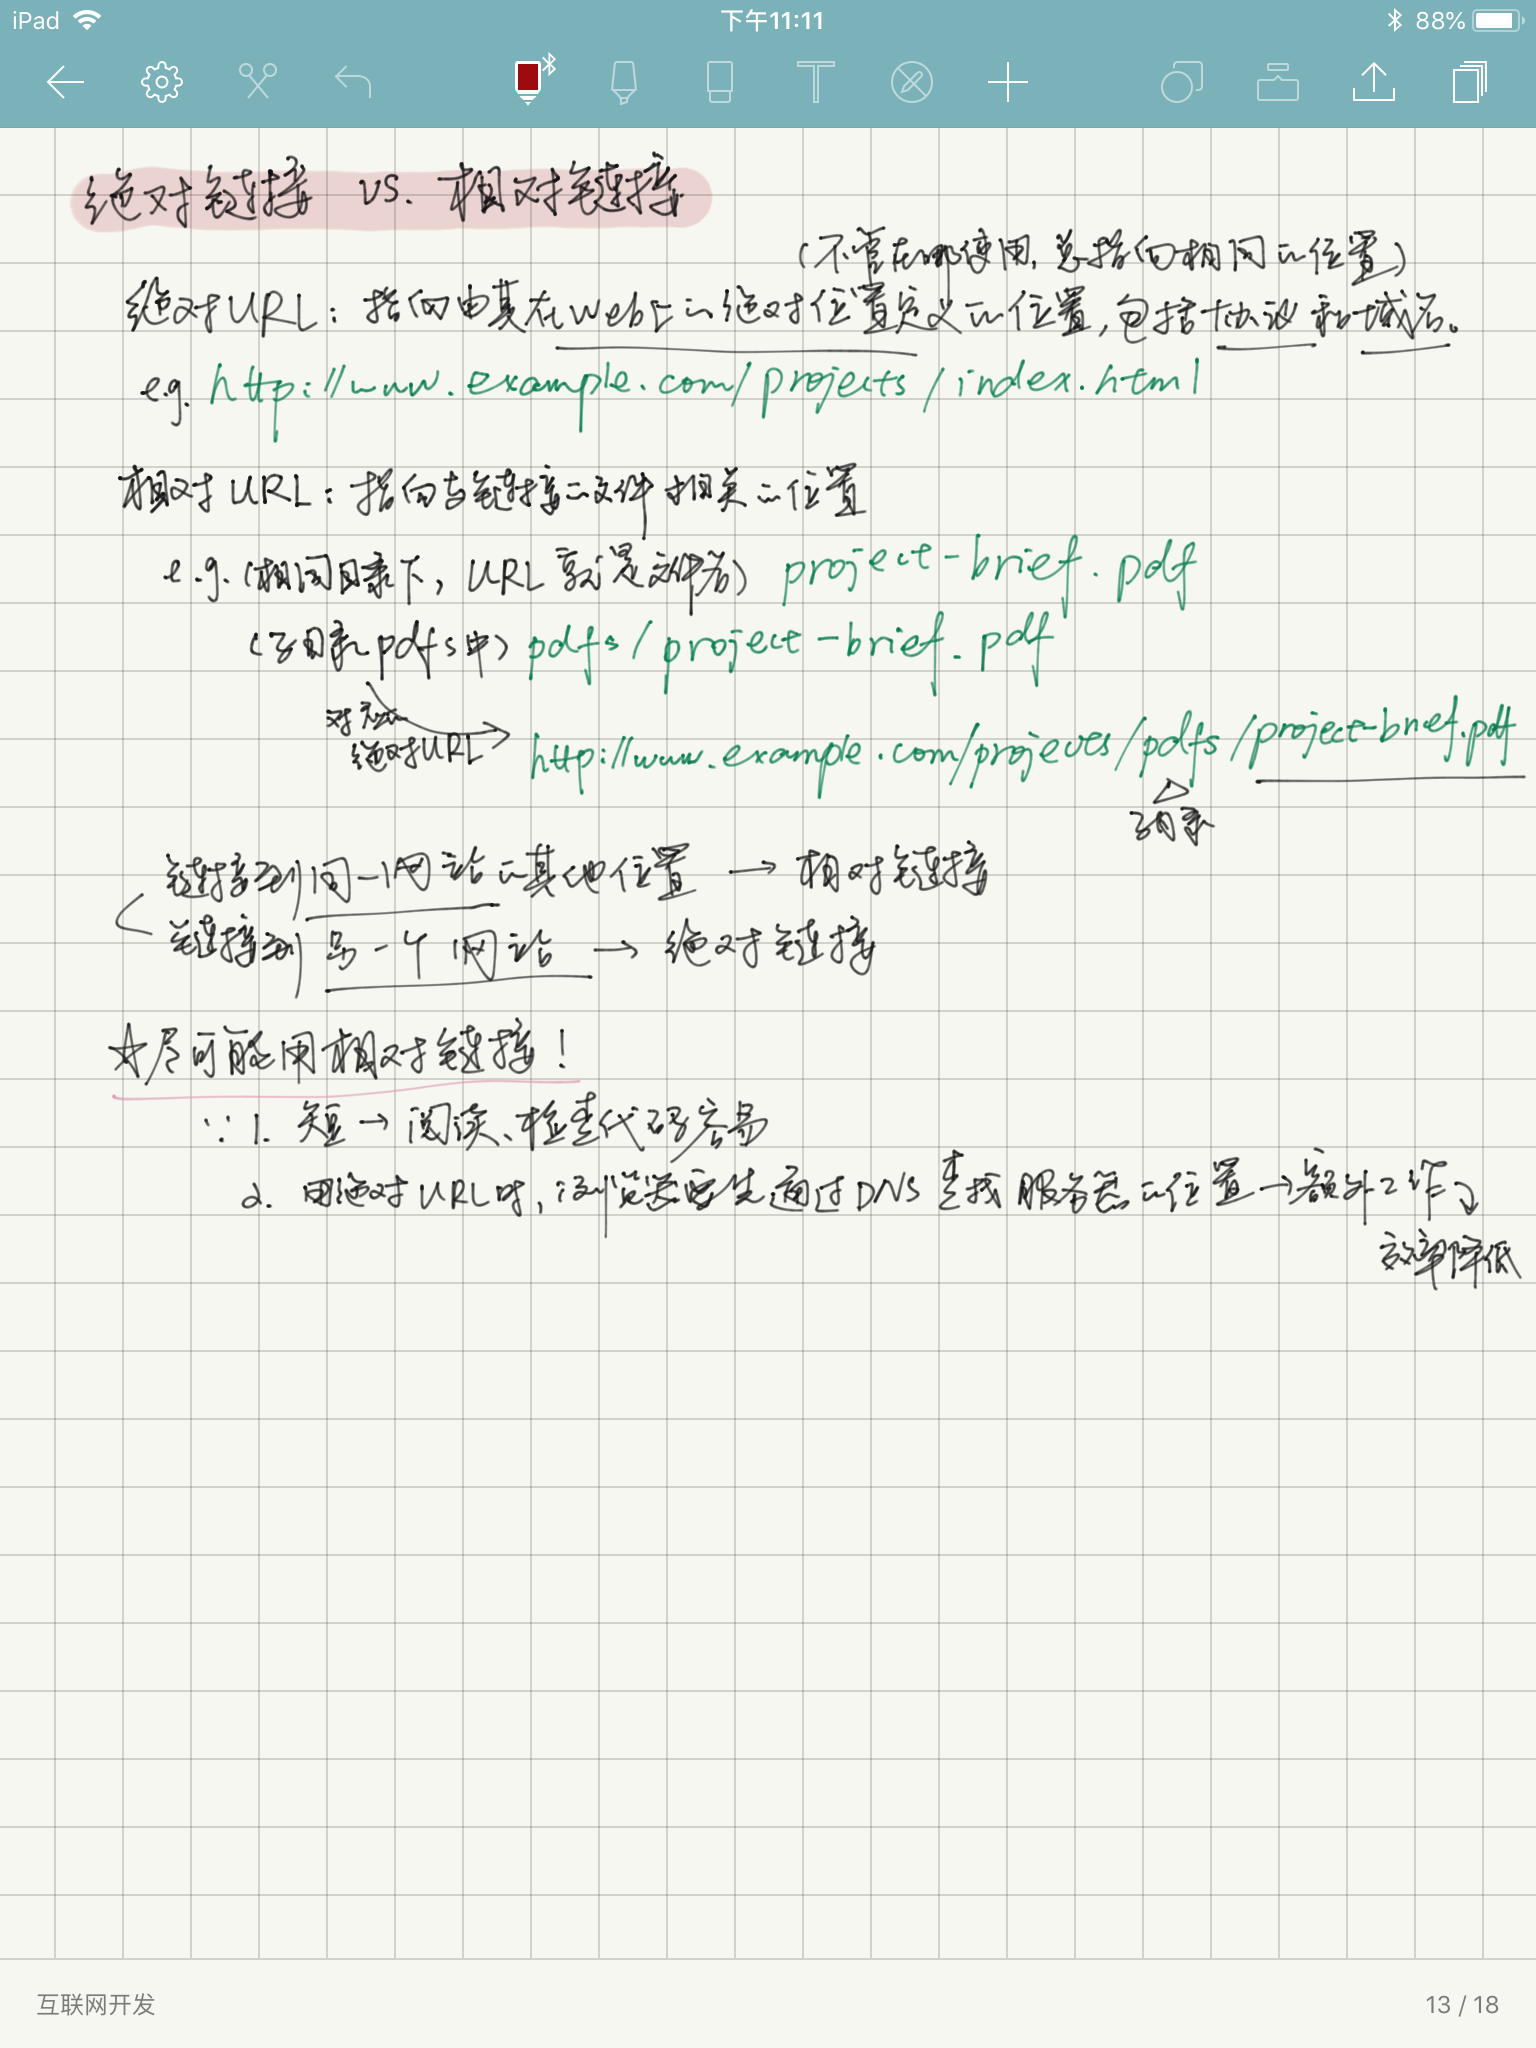 iPad 下午11:11 88%
绝对链接 vs. 相对链接
(不管在哪使用,总指向相同的位置)
绝对URL:指向由其在Web上的绝对位置定义的位置,包括协议和域名。
e.g. http://www.example.com/projects/index.html
相对URL:指向与链接的文件相关的位置
e.g.(相同目录下,URL就是文件名) project-brief.pdf
(子目录pdfs中) pdfs/project-brief.pdf
对应
绝对URL → http://www.example.com/projects/pdfs/project-brief.pdf
子目录
链接到同一网站的其他位置 → 相对链接
链接到另一个网站 → 绝对链接
☆尽可能用相对链接!
∵1. 短→阅读、检查代码容易
2. 用绝对URL时,浏览器要先通过DNS查找服务器的位置→额外工作↘
效率降低
互联网开发 13 / 18